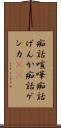 痴話喧嘩痴話
げんか痴話ゲ
ンカ